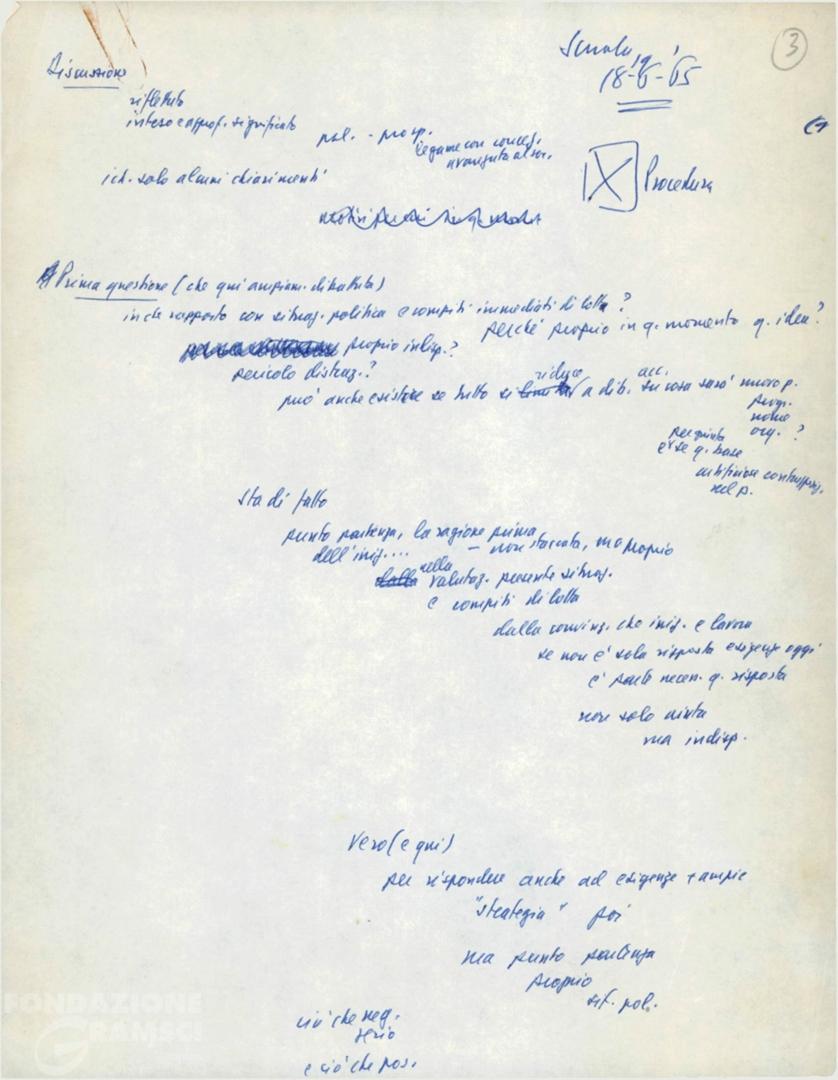 3
Scuola
18-6-'65
Discussione
riflettuto
inteso e approf. significato
pol. - prosp.
legame con conces.
avanzata al soc.
rich. solo alcuni chiarimenti
X Procedura
Prima questione (che qui ampiam. dibattuta)
in che rapporto con situaz. politica e compiti immediati di lotta?
perché proprio in q. momento q. idea?
proprio indisp.?
pericolo distraz.?
può anche esistere se tutto si riduce a dib. acc. su cosa sarà nuovo p.
progr.
nome
org. ?
per giunta
e se q. base
artificiose contrappos.
nel p.
sta di fatto
punto partenza, la ragione prima
dell'iniz.... — non staccata, ma proprio
nella valutaz. presente situaz.
e compiti di lotta
dalla convinz. che iniz. e lavoro
se non è sola risposta esigenze oggi
è parte necess. q. risposta
non solo aiuta
ma indisp.
Vero (e qui)
per rispondere anche ad esigenze + ampie
"strategia" poi
ma punto partenza
proprio
sit. pol.
ciò che neg.
serio
e ciò che pos.
FONDAZIONE
GRAMSCI